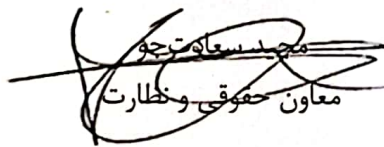 مجید سعادت‌جو
معاون حقوقی و نظارت